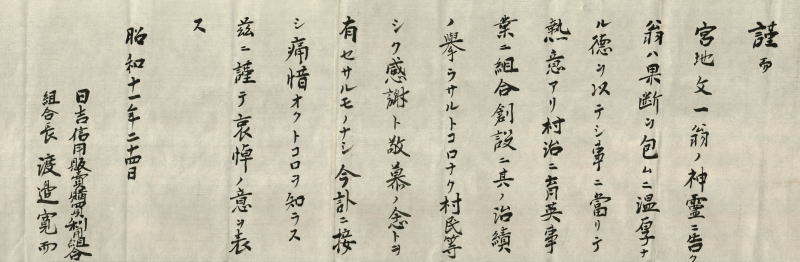 謹而
宮地文一翁ノ神靈ニ告ク
翁ハ果斷ヲ包ムニ温厚ナ
ル德ヲ以テシ事ニ當リテ
熱意アリ村治ニ育英事
業ニ組合創設ニ其ノ治績
ノ擧ラサルトコロナク村民等
シク感謝ト敬慕ノ念トヲ
有セサルモノナシ今訃ニ接
シ痛惜オクトコロヲ知ラス
玆ニ謹テ哀悼ノ意ヲ表
ス
昭和十一年二十四日
日吉信用販賣購買利用組合
組合長 渡邉寛而